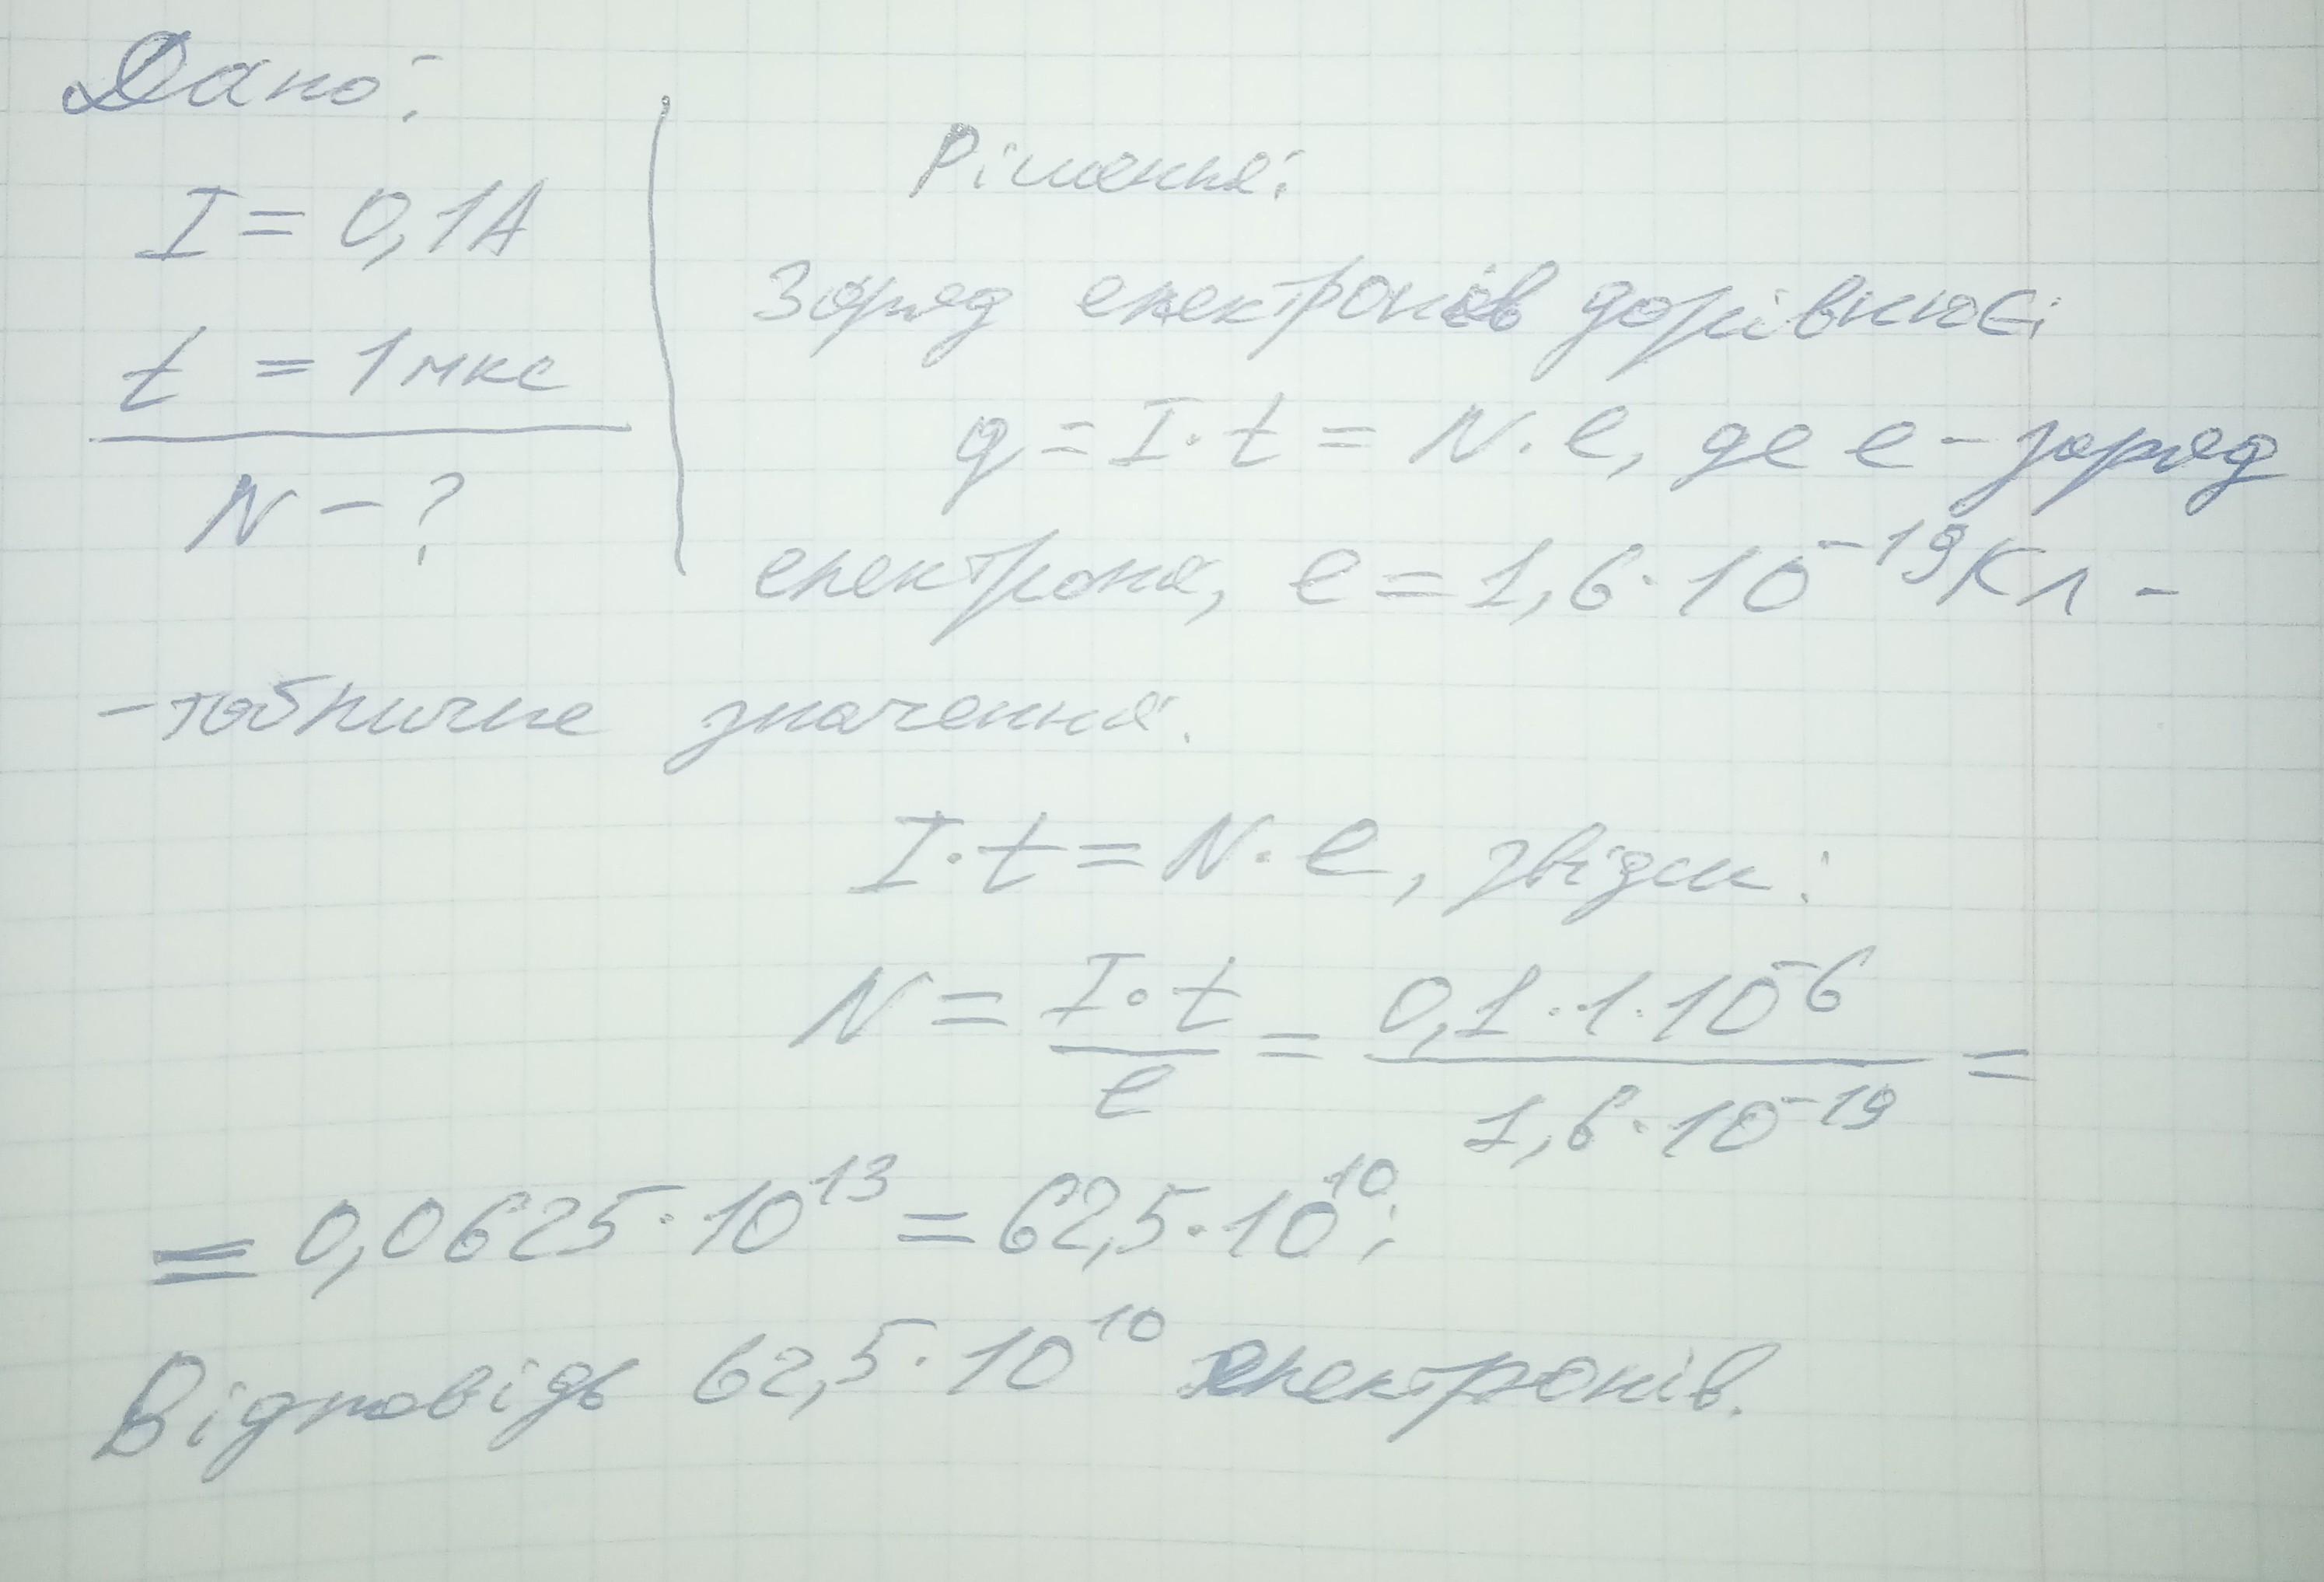 Дано:
I = 0,1А
t = 1 мкс
N - ?
Рішення:
Заряд електронів дорівнює:
q = I · t = N · e, де e - заряд
електрона, e = 1,6 · 10⁻¹⁹ Кл -
- табличне значення.
I · t = N · e, звідси:
N = \frac{I · t}{e} = \frac{0,1 · 1 · 10⁻⁶}{1,6 · 10⁻¹⁹} =
= 0,0625 · 10¹³ = 62,5 · 10¹⁰;
Відповідь 62,5 · 10¹⁰ електронів.